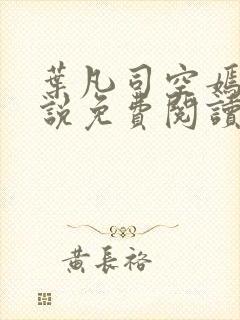 葉凡司空嫣
說免費閱讀
黃長裕